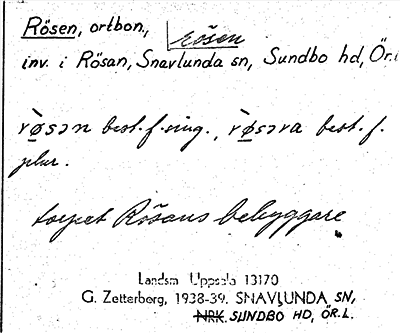 Rösen, ortbon., rösen
inv. i Rösan, Snavlunda sn, Sundbo hd, Ör.
rø̀sən best. f. sing., rø̀səra best. f.
plur.
torpet Rösans bebyggare
Landsm Uppsala 13170
G. Zetterberg, 1938-39. SNAVLUNDA SN,
NRK. SUNDBO HD, ÖR.L.